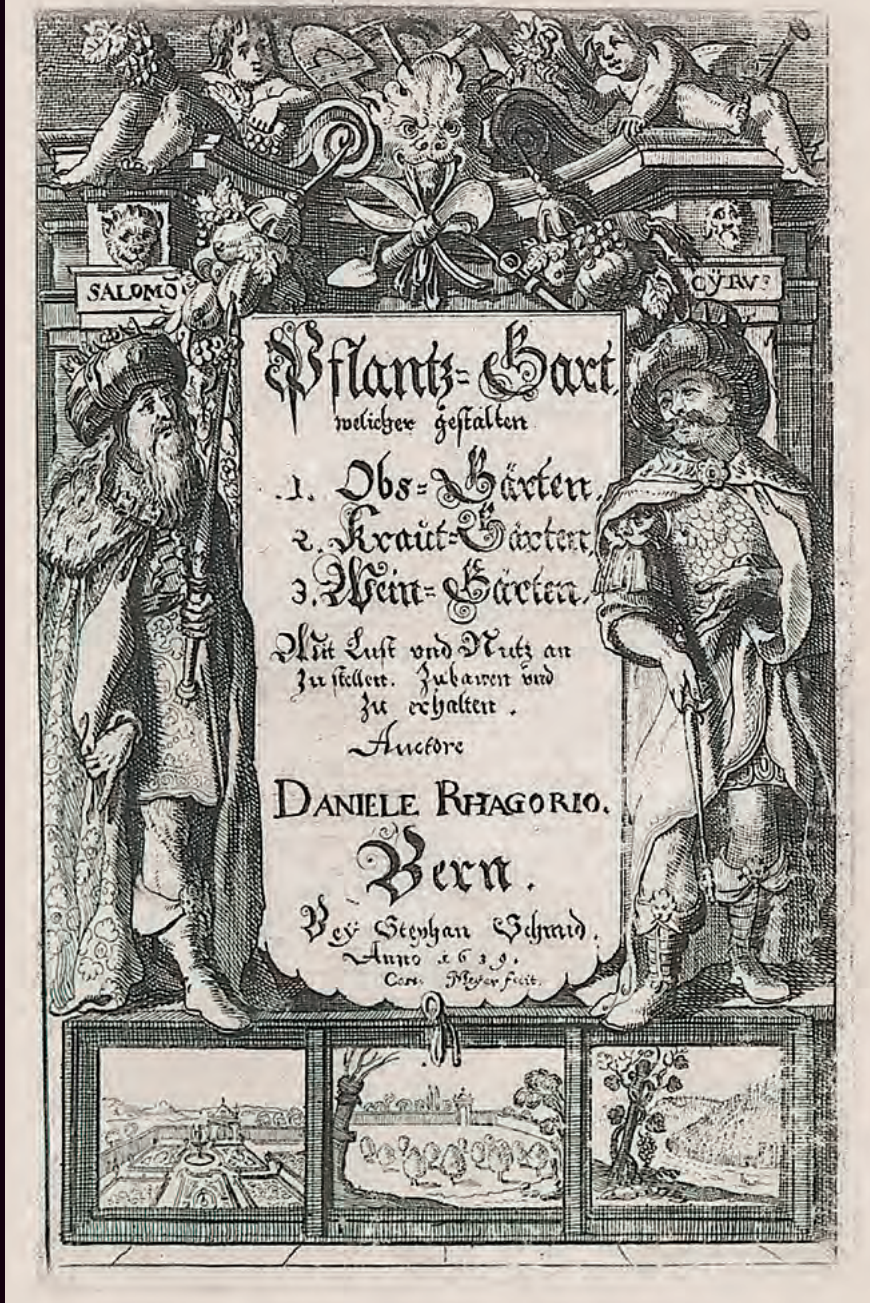 SALOMŌ
CŸRVS
Pflantz-Gart
welicher gestalten
.1. Obs-Gärten,
2. Kraut-Gärten,
3. Wein-Gärten,
Mit Lust vnd Nutz an
Zu stellen. Zubawen vnd
Zu erhalten.
Auctore
DANIELE RHAGORIO.
Bern.
Beÿ Stephan Schmid.
Anno 1639.
Meÿer fecit.